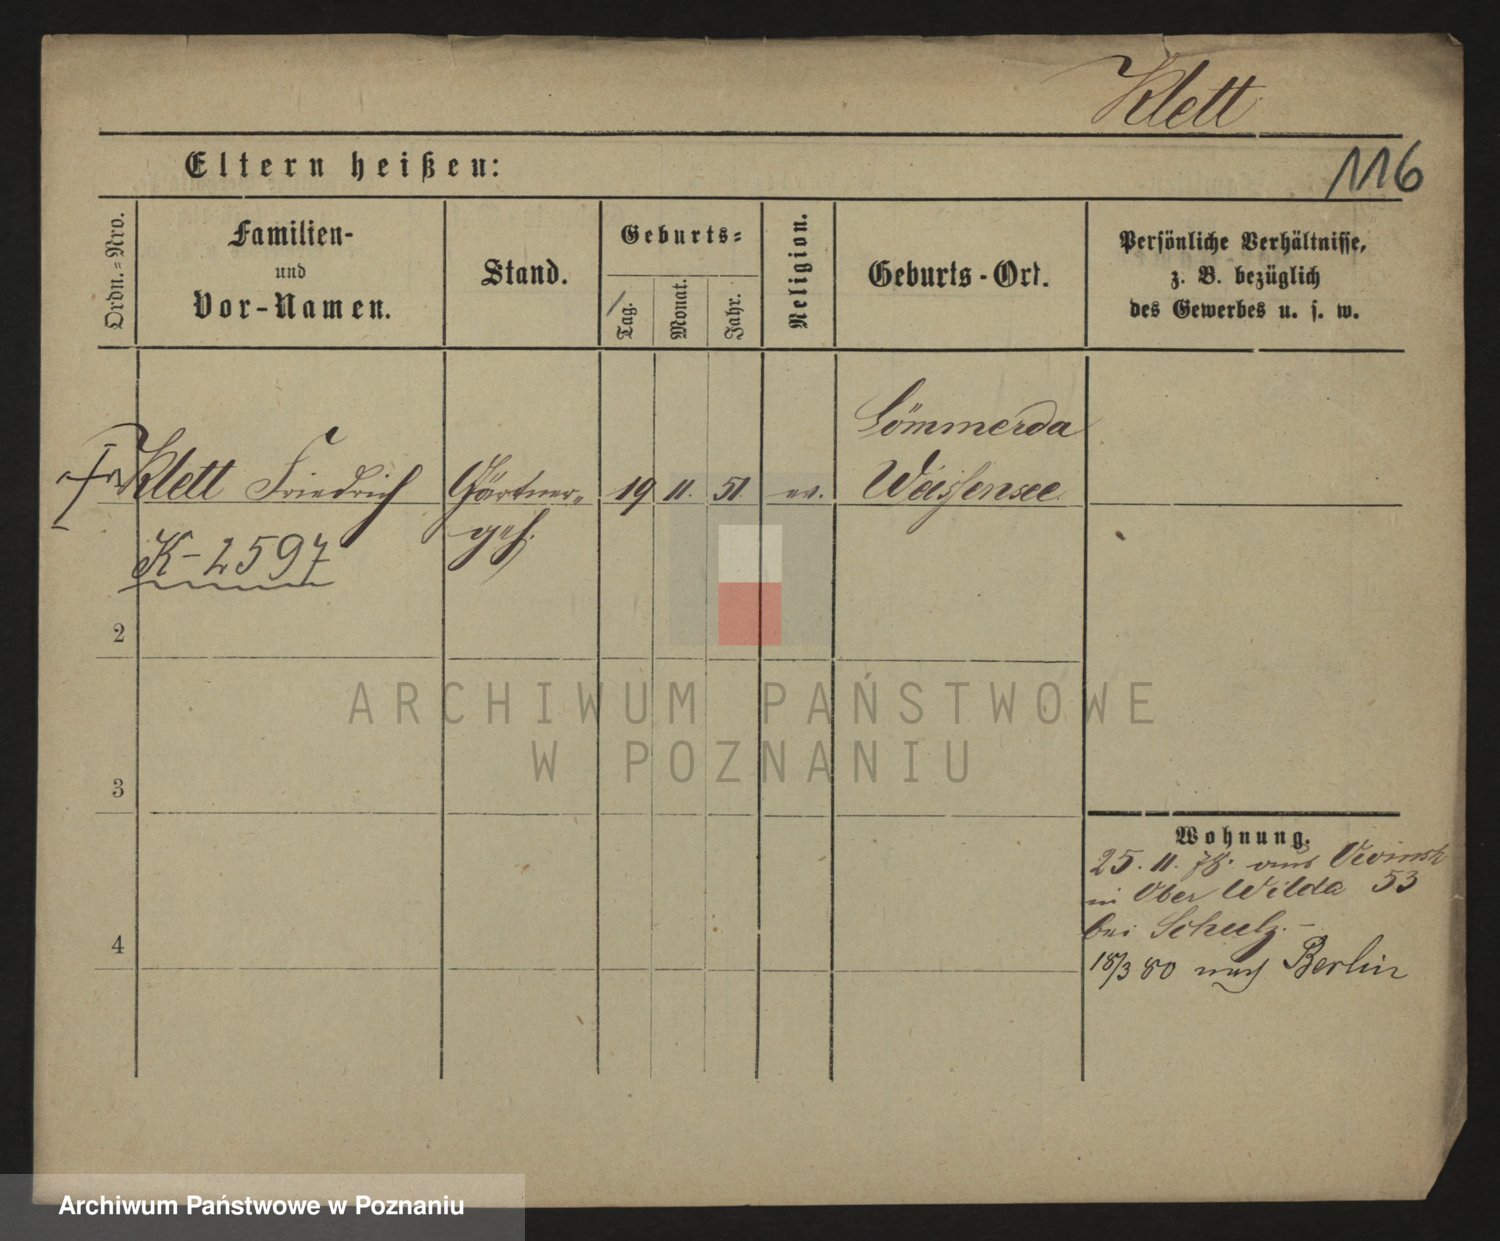 Klett
116
Eltern heißen:
Ordn.=Nro.
Familien-
und
Vor-Namen.
Stand.
Geburts=
Tag.
Monat.
Jahr.
Religion.
Geburts-Ort.
Persönliche Verhältnisse,
z. B. bezüglich
des Gewerbes u. s. w.
Klett Friedrich
Gärtner=
geh.
19
11.
51.
ev.
Sömmerda
Weissensee
K-2597
2
3
4
Wohnung.
25. 11. 78. aus
in Ober Wilda 53
bei Schulz.-
18/3 80 nach Berlin
ARCHIWUM PAŃSTWOWE
W POZNANIU
Archiwum Państwowe w Poznaniu